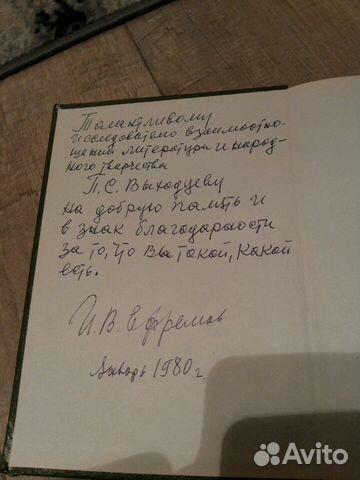 Талантливому
исследователю взаимоотно-
шений литературы и народ-
ного творчества
П.С. Выходцеву
на добрую память и
в знак благодарности
за то, что Вы такой, какой
есть.
И.В. Ефремов
Январь 1980 г.
Avito